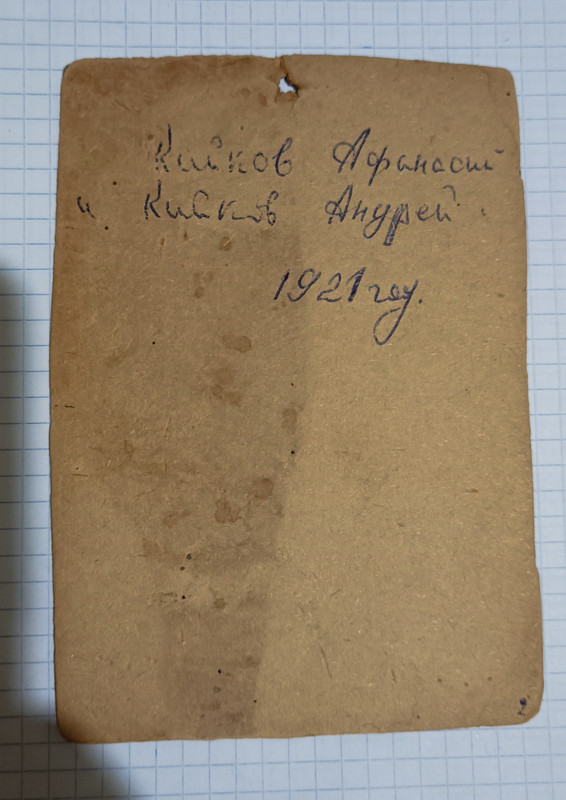 Кийков Афанасий
и Кийков Андрей.
1921 году.
2